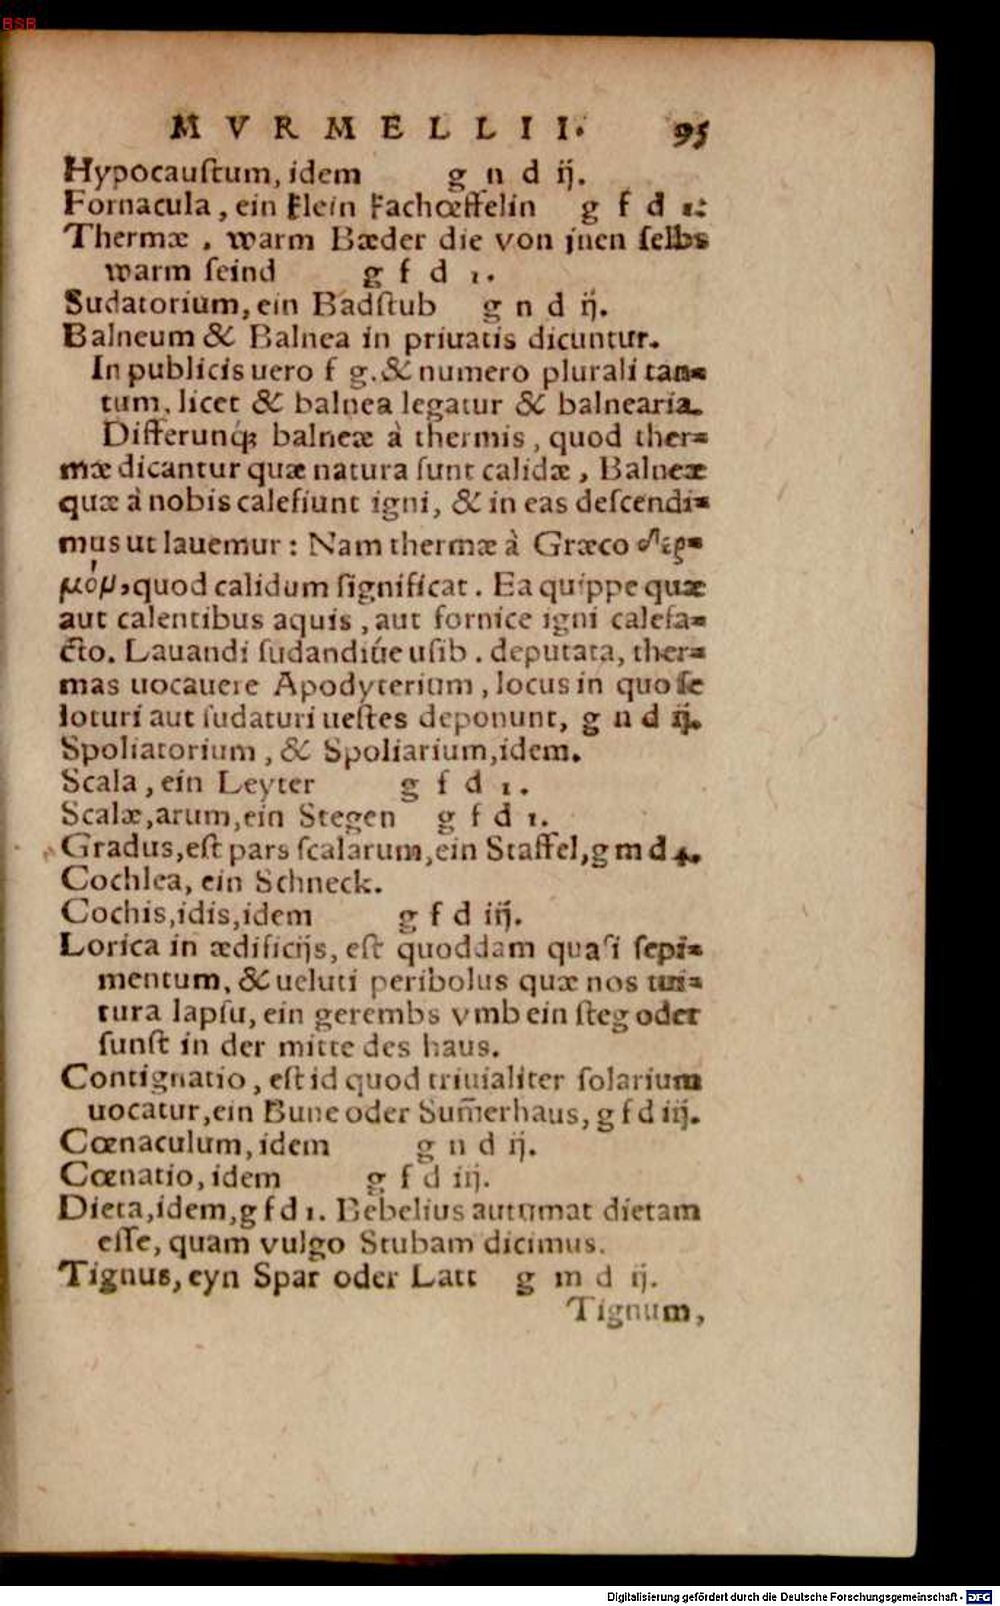 BSB
MVRMELLII. 95
Hypocauſtum, idem g n d ij.
Fornacula, ein klein kachœffelin g f d 1.
Thermæ, warm Bæder die von jnen ſelbs
warm ſeind g f d 1.
Sudatorium, ein Badſtub g n d ij.
Balneum & Balnea in priuatis dicuntur.
In publicis uero f g. & numero plurali tan=
tum, licet & balnea legatur & balnearia.
Differunq́; balneæ à thermis, quod ther=
mæ dicantur quæ natura ſunt calidæ, Balneæ
quæ à nobis calefiunt igni, & in eas deſcendi=
mus ut lauemur: Nam thermæ à Græco θερ=
μὸμ, quod calidum ſignificat. Ea quippe quæ
aut calentibus aquis, aut fornice igni calefa=
cto. Lauandi ſudandiúe uſib. deputata, ther=
mas uocauere Apodyterium, locus in quo ſe
loturi aut ſudaturi ueſtes deponunt, g n d ij.
Spoliatorium, & Spoliarium, idem.
Scala, ein Leyter g f d 1.
Scalæ, arum, ein Stegen g f d 1.
Gradus, eſt pars ſcalarum, ein Staffel, g m d 4.
Cochlea, ein Schneck.
Cochis, idis, idem g f d iij.
Lorica in ædificijs, eſt quoddam quaſi ſepi=
mentum, & ueluti peribolus quæ nos tui=
tura lapſu, ein gerembs vmb ein ſteg oder
ſunſt in der mitte des haus.
Contignatio, eſt id quod triuialiter ſolarium
uocatur, ein Bune oder Sum̃erhaus, g f d iij.
Cœnaculum, idem g n d ij.
Cœnatio, idem g f d iij.
Dieta, idem, g f d 1. Bebelius autumat dietam
eſſe, quam vulgo Stubam dicimus.
Tignus, eyn Spar oder Latt g m d ij.
Tignum,
Digitalisierung gefördert durch die Deutsche Forschungsgemeinschaft - DFG